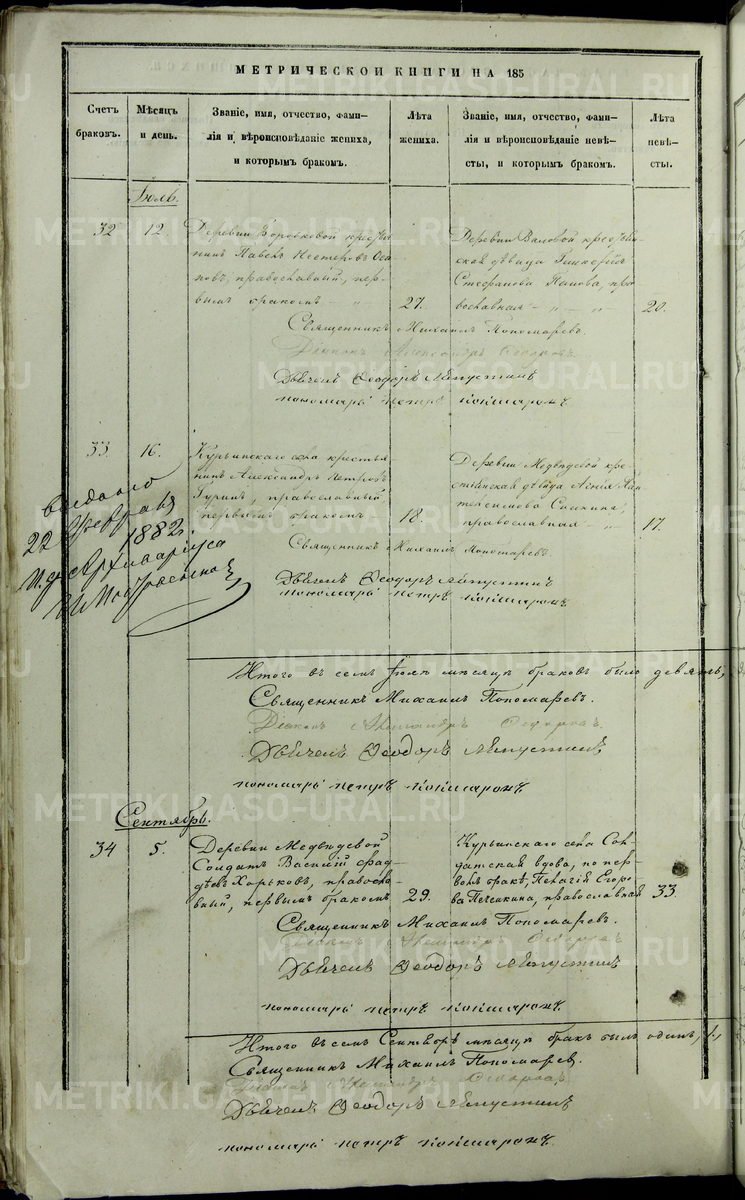 МЕТРИЧЕСКОЙ КНИГИ НА 185
Счетъ браковъ.
Мѣсяцъ и день.
Званіе, имя, отчество, фами-
лія и вѣроисповѣданіе жениха,
и которымъ бракомъ.
Лѣта жениха.
Званіе, имя, отчество, фами-
лія и вѣроисповѣданіе невѣ-
сты, и которымъ бракомъ.
Лѣта невѣ-
сты.
Іюль.
32
12.
Деревни Воробковой крестья
нинъ Павелъ Нестеровъ Оса
повъ, православный, пер-
вымъ бракомъ
27.
Деревни Валовой крестьян-
ская дѣвица Гликерія
Стефанова Панова, пра
вославная
20.
Священникъ Михаилъ Пономаревъ.
Діаконъ Александръ
Дьячекъ Ѳеодоръ
пономарь петръ
33.
16.
Курьинскаго села крестья-
нинъ Александръ Петровъ
Гуринъ, православный
первымъ бракомъ
18.
Деревни Медвѣдевой кре-
стьянская дѣвица
православная
17.
Священникъ Михаилъ Пономаревъ
Дьячекъ Ѳеодоръ
пономарь петръ
22 Февраля
1882 г.
Архиваріуса
Итого въ семъ Іюлѣ мѣсяцѣ браковъ было девять,
Священникъ Михаилъ Пономаревъ.
Діаконъ
Дьячекъ Ѳеодоръ
пономарь петръ
Сентябрь.
34
5.
Деревни Медвѣдевой
Солдатъ Василій Фад-
дѣевъ Хорьковъ, правосла-
вный, первымъ бракомъ
29.
Курьинскаго села Сол-
датская вдова, по пер-
вомъ бракѣ, Пелагія Егоро-
ва Печенкина, православная
33.
Священникъ Михаилъ Пономаревъ.
Діаконъ
Дьячекъ Ѳеодоръ
пономарь петръ
Итого въ семъ Сентябрѣ мѣсяцѣ бракъ былъ одинъ, 1.,
Священникъ Михаилъ Пономаревъ,
Діаконъ
Дьячекъ Ѳеодоръ
пономарь петръ
METRIKI.GASO-URAL.RU